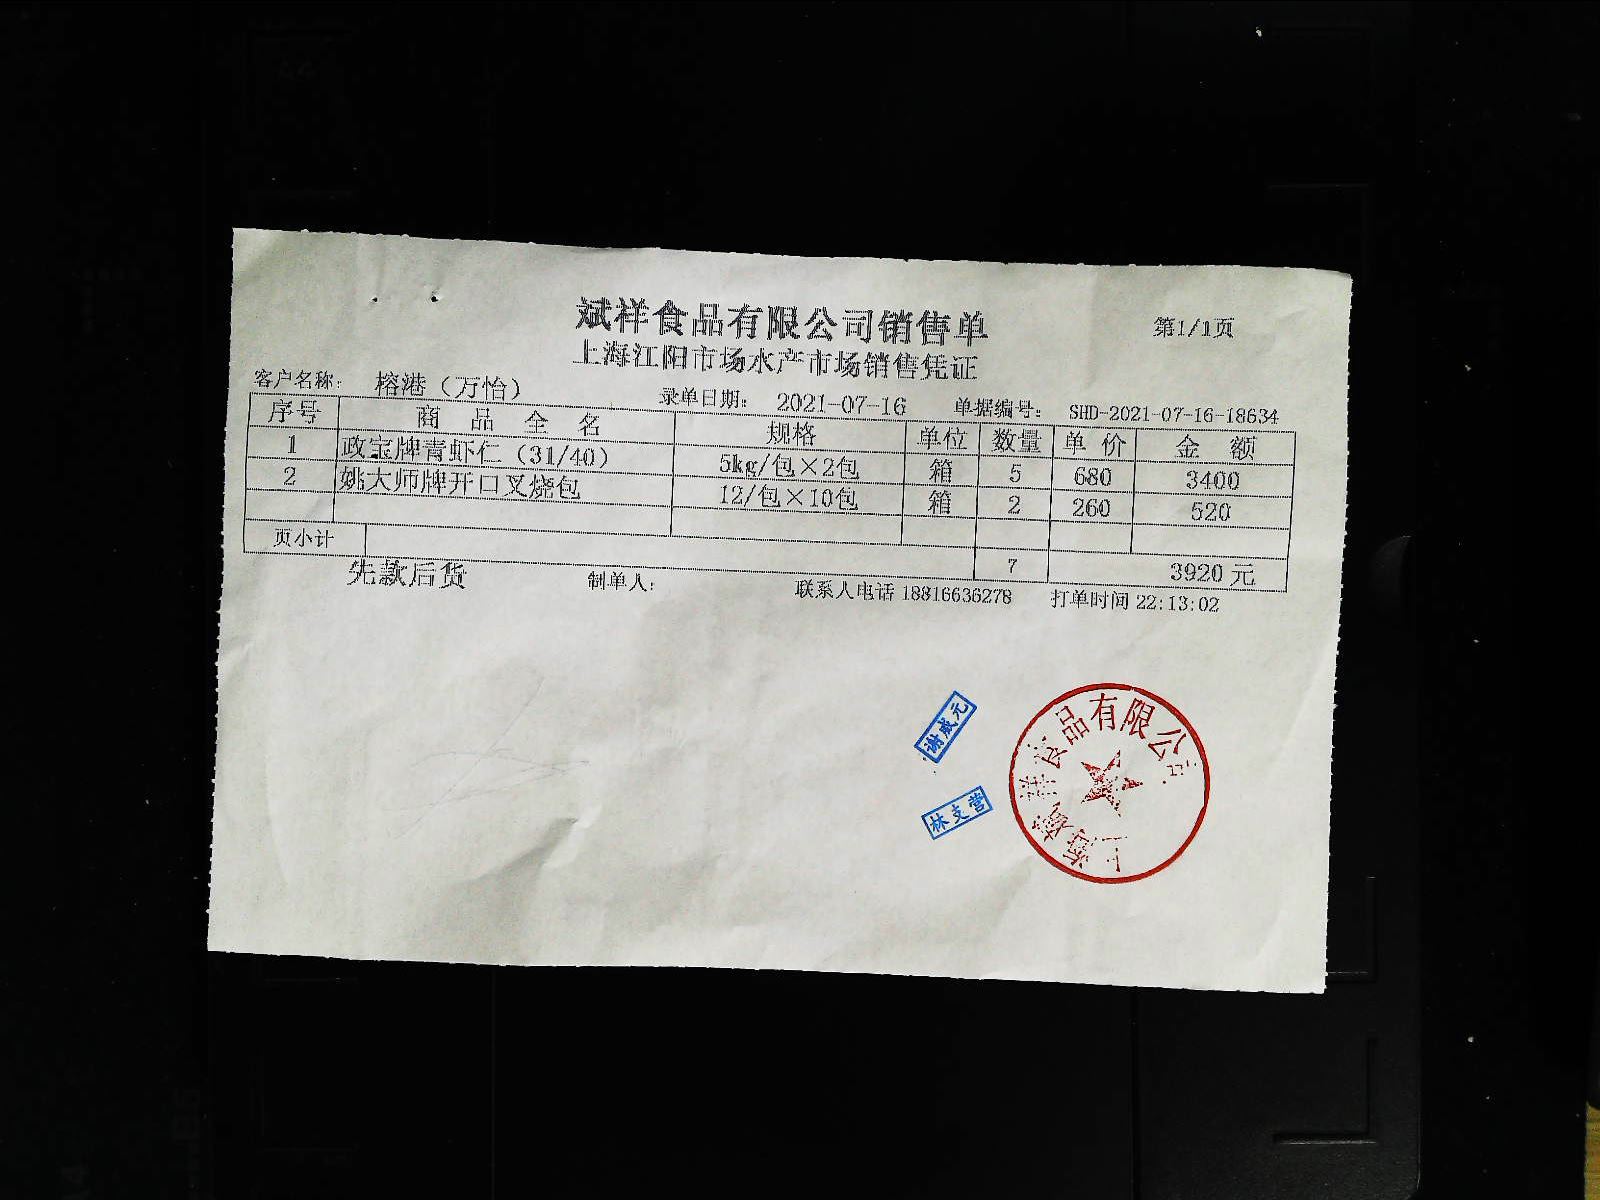 斌祥食品有限公司销售单
第1/1页
上海江阳市场水产市场销售凭证
客户名称: 榕港（万怡） 录单日期: 2021-07-16 单据编号: SHD-2021-07-16-18634
序号 商品全名 规格 单位 数量 单价 金额
1 政宝牌青虾仁（31/40） 5kg/包×2包 箱 5 680 3400
2 姚大师牌开口叉烧包 12/包×10包 箱 2 260 520
页小计 7 3920元
先款后货 制单人: 联系人电话 18816636278 打单时间 22:13:02
谢成元
林支营
上海斌祥食品有限公司